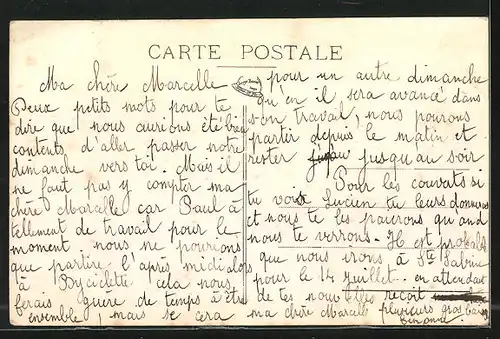 CARTE POSTALE
Ma chère Marcelle
Deux petits mots pour te
dire que nous aurions été bien
contents d'aller passer notre
dimanche vers toi. Mais il
ne faut pas y compter ma
chère Marcelle car Paul à
tellement de travail pour le
moment. nous ne pourrions
que partire l'après midi alors
à Bycéclette cela nous
ferais guere de temps à être
ensemble, mais se cera
pour un autre dimanche
qu'en il sera avancé dans
son travail, nous pourons
partir depuis le matin et
rester jusqu'au soir
Pour les couverts si
tu vois Lucien tu leurs donneras
et nous te les pairons qu'and
nous te verrons. Il est probable
que nous irons à Ste Sabine
pour le 14 Juillet. en attendant
de tes nouvelles reçoit
ma chère Marcelle plusieurs gros baisers